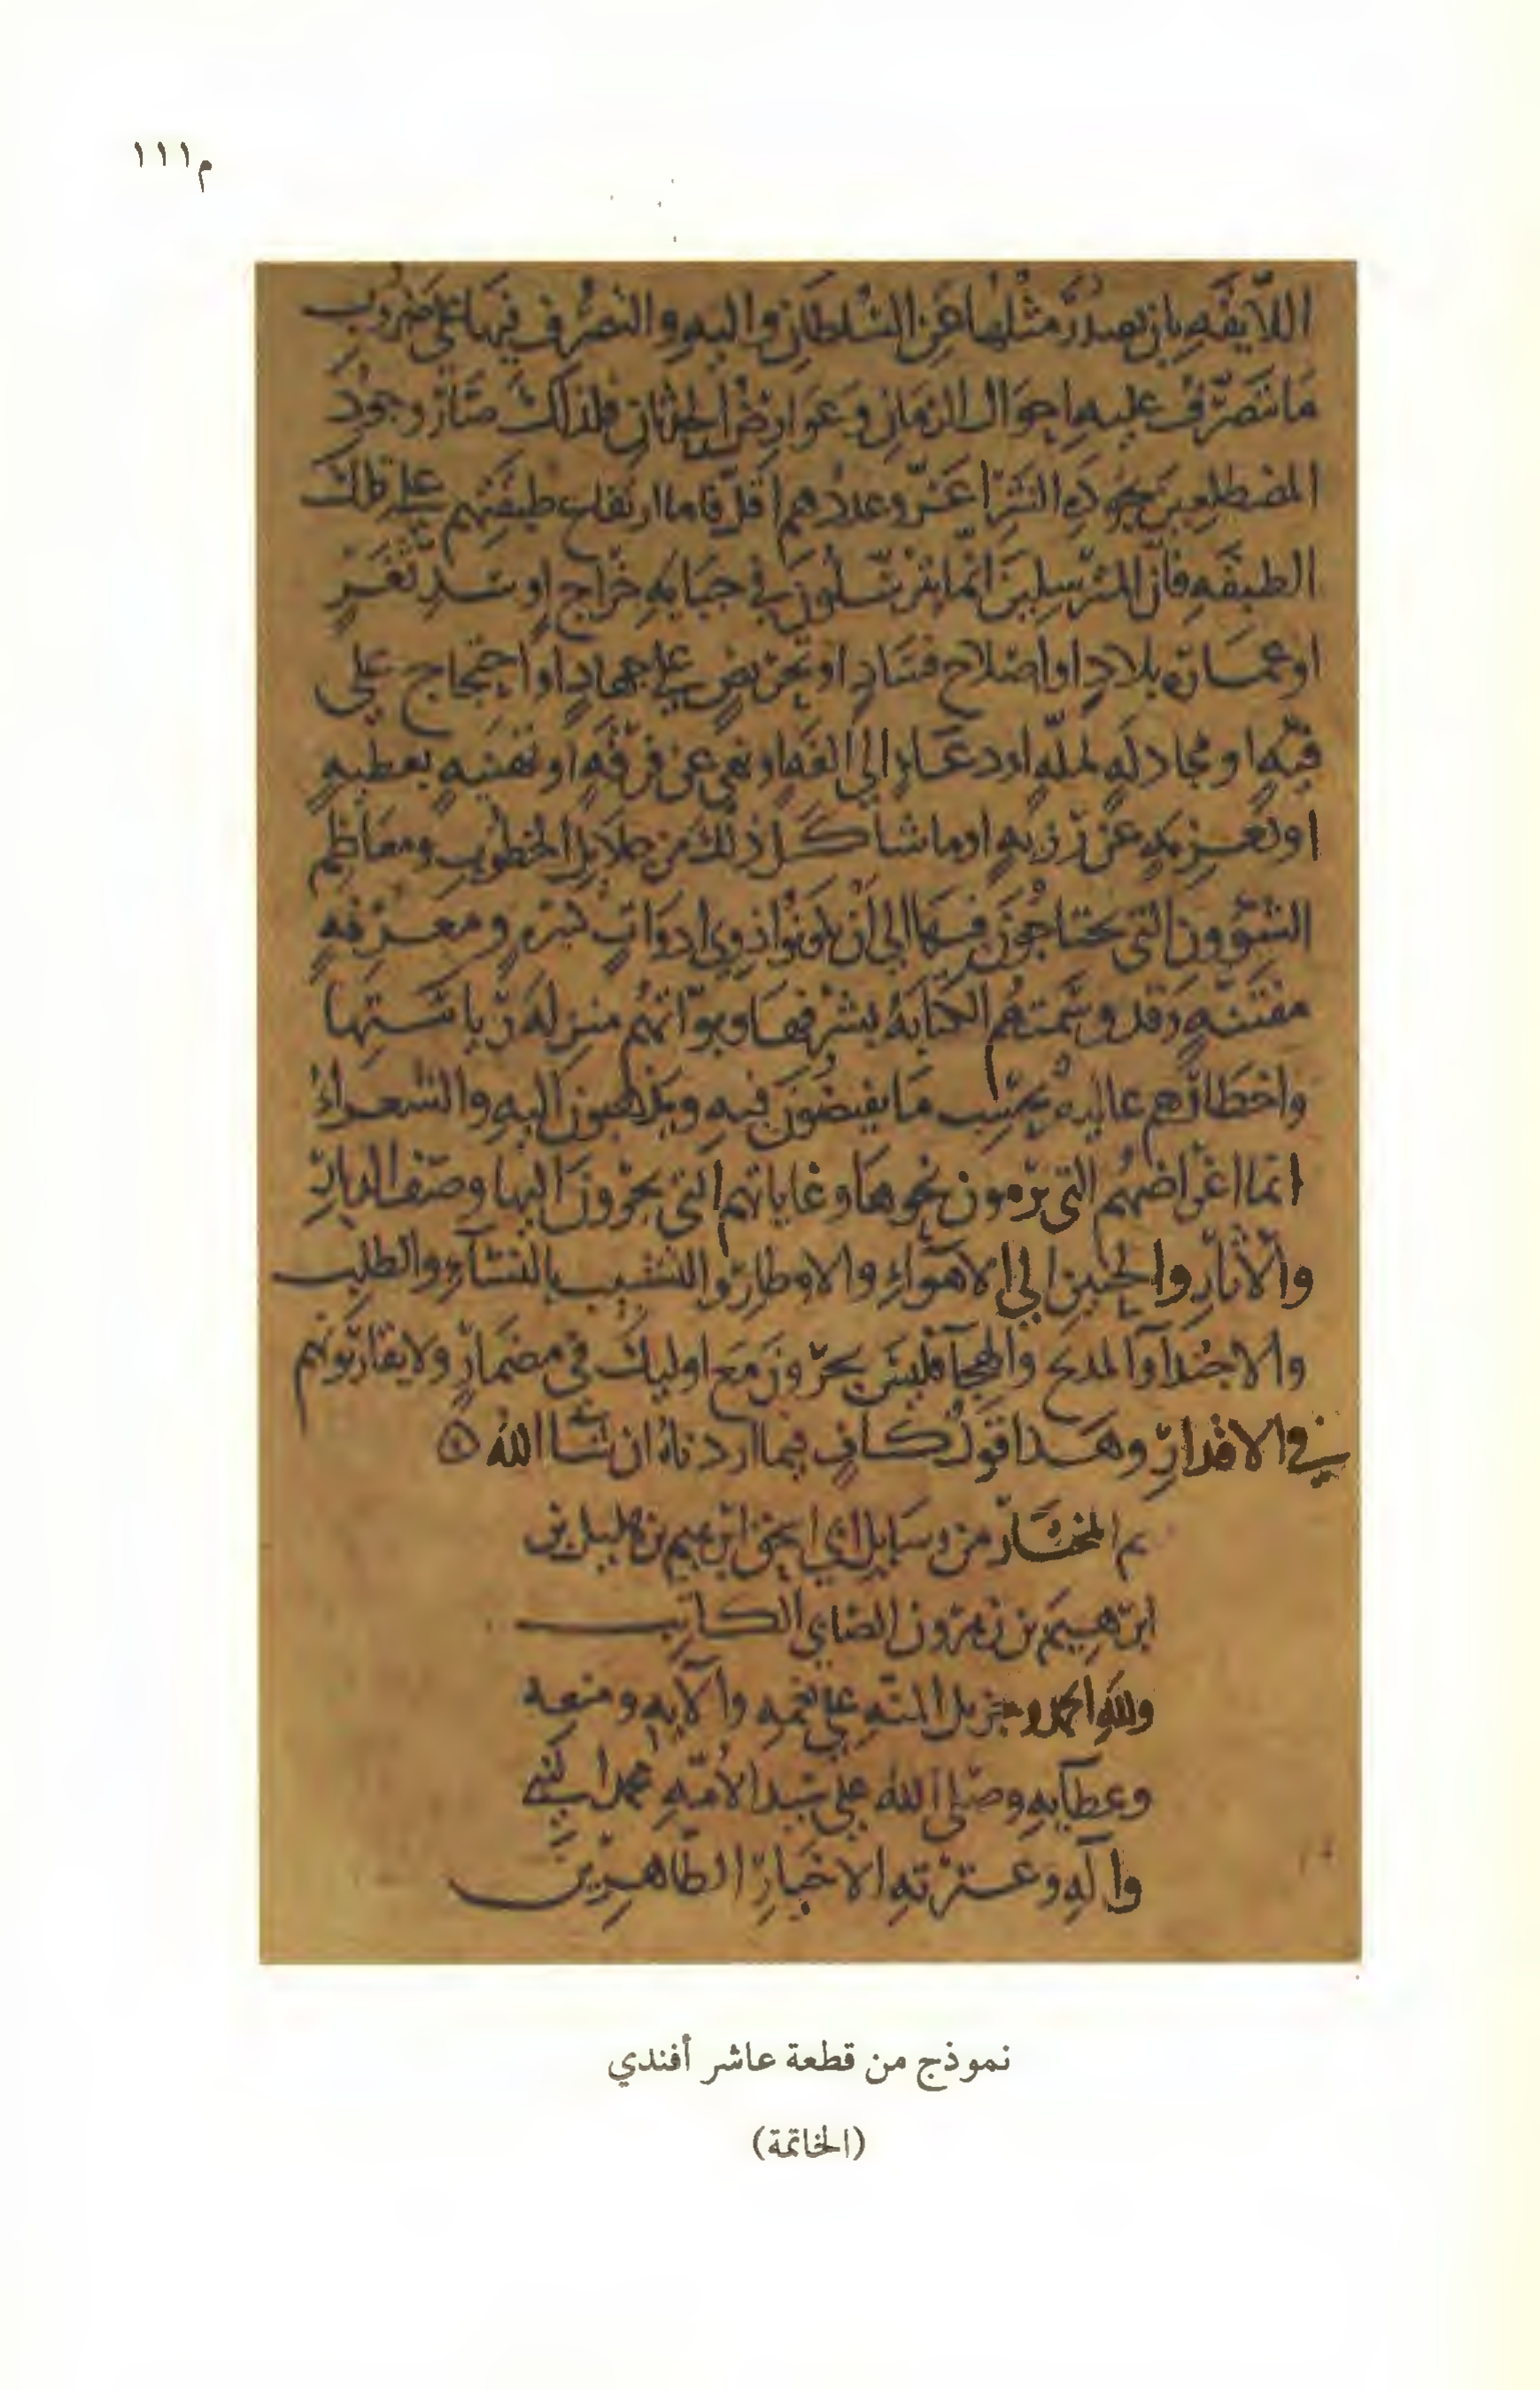 م١١١
اللائقه بان يصدر مثلها عن السلطان واليه والتصرف فيها على ضروب
ما تتصرف عليه احوال الزمان وعوارض الحدثان فلذلك صار وجود
المضطلعين بجوده النثر اعز وعددهم اقل فاما ارتفاع طبقتهم على تلك
الطبقه فان المترسلين انما يترسلون في جبايه خراج او سد ثغر
او عماره بلاد او اصلاح فساد او تحريض على جهاد او احتجاج على
فئه او مجادله لمله او دعاء الى الفه او نهي عن فرقه او تهنيه بعطيه
او تعزيه عن رزيه او ما شاكل ذلك من جلايل الخطوب ومعاظم
الشؤون التي يحتاجون فيها الى ان يكونوا ذوي ادوات كثيره ومعرفه
مفتنه وقد وسمتهم الكتابه بشرفها وبوأتهم منزله رياستها
واخطارهم عاليه بحسب ما يفيضون فيه ويذهبون اليه والشعراء
انما اغراضهم التي يرمون نحوها وغاياتهم التي يجرون اليها وصف الديار
والآثار والحنين الى الاهواء والاوطار والتشبيب بالنساء والطلب
والاجتدا والمديح والهجاء فليس يجرون مع اوليك في مضمار ولا يقاربونهم
في الاقدار وهذا قول كاف فيما اردناه ان شا الله
تم المختار من رسايل ابي اسحق ابرهيم بن هليل بن
ابرهيم بن زهرون الصابي الكاتب
ولله الحمد وجزيل المنه على نعمه وآلايه ومنعه
وعطآيه وصلى الله على سيد الامه محمد النبي
وآله وعترته الاخيار الطاهرين
نموذج من قطعة عاشر أفندي
(الخاتمة)